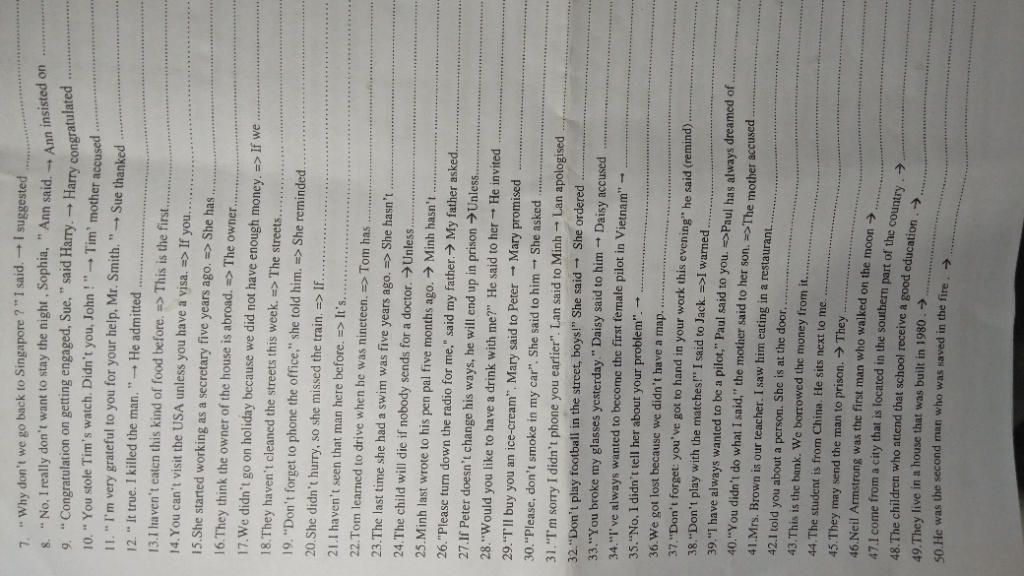 7. “ Why don’t we go back to Singapore ? ” I said. → I suggested ....................
8. “ No, I really don’t want to stay the night , Sophia, ” Ann said. → Ann insisted on
9. “ Congratulation on getting engaged, Sue, ” said Harry. → Harry congratulated
10. “ You stole Tim’s watch. Didn’t you, John ! ” → Tim’ mother accused
11. “ I’m very grateful to you for your help, Mr. Smith. ” → Sue thanked
12. “ It true. I killed the man. ” → He admitted....................
13.I haven’t eaten this kind of food before. => This is the first....................
14.You can’t visit the USA unless you have a visa. => If you....................
15.She started working as a secretary five years ago. => She has
16.They think the owner of the house is abroad. => The owner....................
17.We didn’t go on holiday because we did not have enough money. => If we
18.They haven’t cleaned the streets this week. => The streets....................
19. “Don’t forget to phone the office.” she told him. => She reminded....................
20.She didn’t hurry, so she missed the train. => If....................
21.I haven’t seen that man here before. => It’s....................
22.Tom learned to drive when he was nineteen. => Tom has
23.The last time she had a swim was five years ago. => She hasn’t
24.The child will die if nobody sends for a doctor. →Unless....................
25.Minh last wrote to his pen pal five months ago. → Minh hasn’t
26.“Please turn down the radio for me,” said my father.→ My father asked....................
27.If Peter doesn’t change his ways, he will end up in prison →Unless....................
28.“Would you like to have a drink with me?” He said to her → He invited
29.“I’ll buy you an ice-cream”. Mary said to Peter → Mary promised ....................
30.“Please, don’t smoke in my car”. She said to him → She asked ....................
31.“I’m sorry I didn’t phone you earlier”. Lan said to Minh → Lan apologised ....................
32.“Don’t play football in the street, boys!” She said → She ordered ....................
33.“You broke my glasses yesterday.” Daisy said to him → Daisy accused ....................
34.“I’ve always wanted to become the first female pilot in Vietnam” → ....................
35.“No, I didn’t tell her about your problem”. → ....................
36.We got lost because we didn’t have a map....................
37.“Don’t forget: you’ve got to hand in your work this evening” he said (remind) ....................
38.“Don’t play with the matches!” I said to Jack. =>I warned....................
39.“I have always wanted to be a pilot,” Paul said to you. =>Paul has always dreamed of
40.“You didn’t do what I said,” the mother said to her son. =>The mother accused....................
41.Mrs. Brown is our teacher. I saw him eating in a restaurant....................
42.I told you about a person. She is at the door....................
43.This is the bank. We borrowed the money from it....................
44.The student is from China. He sits next to me....................
45.They may send the man to prison. → They....................
46.Neil Armstrong was the first man who walked on the moon → ....................
47.I come from a city that is located in the southern part of the country . → ....................
48.The children who attend that school receive a good education . → ....................
49.They live in a house that was built in 1980 . → ....................
50.He was the second man who was saved in the fire . → ....................